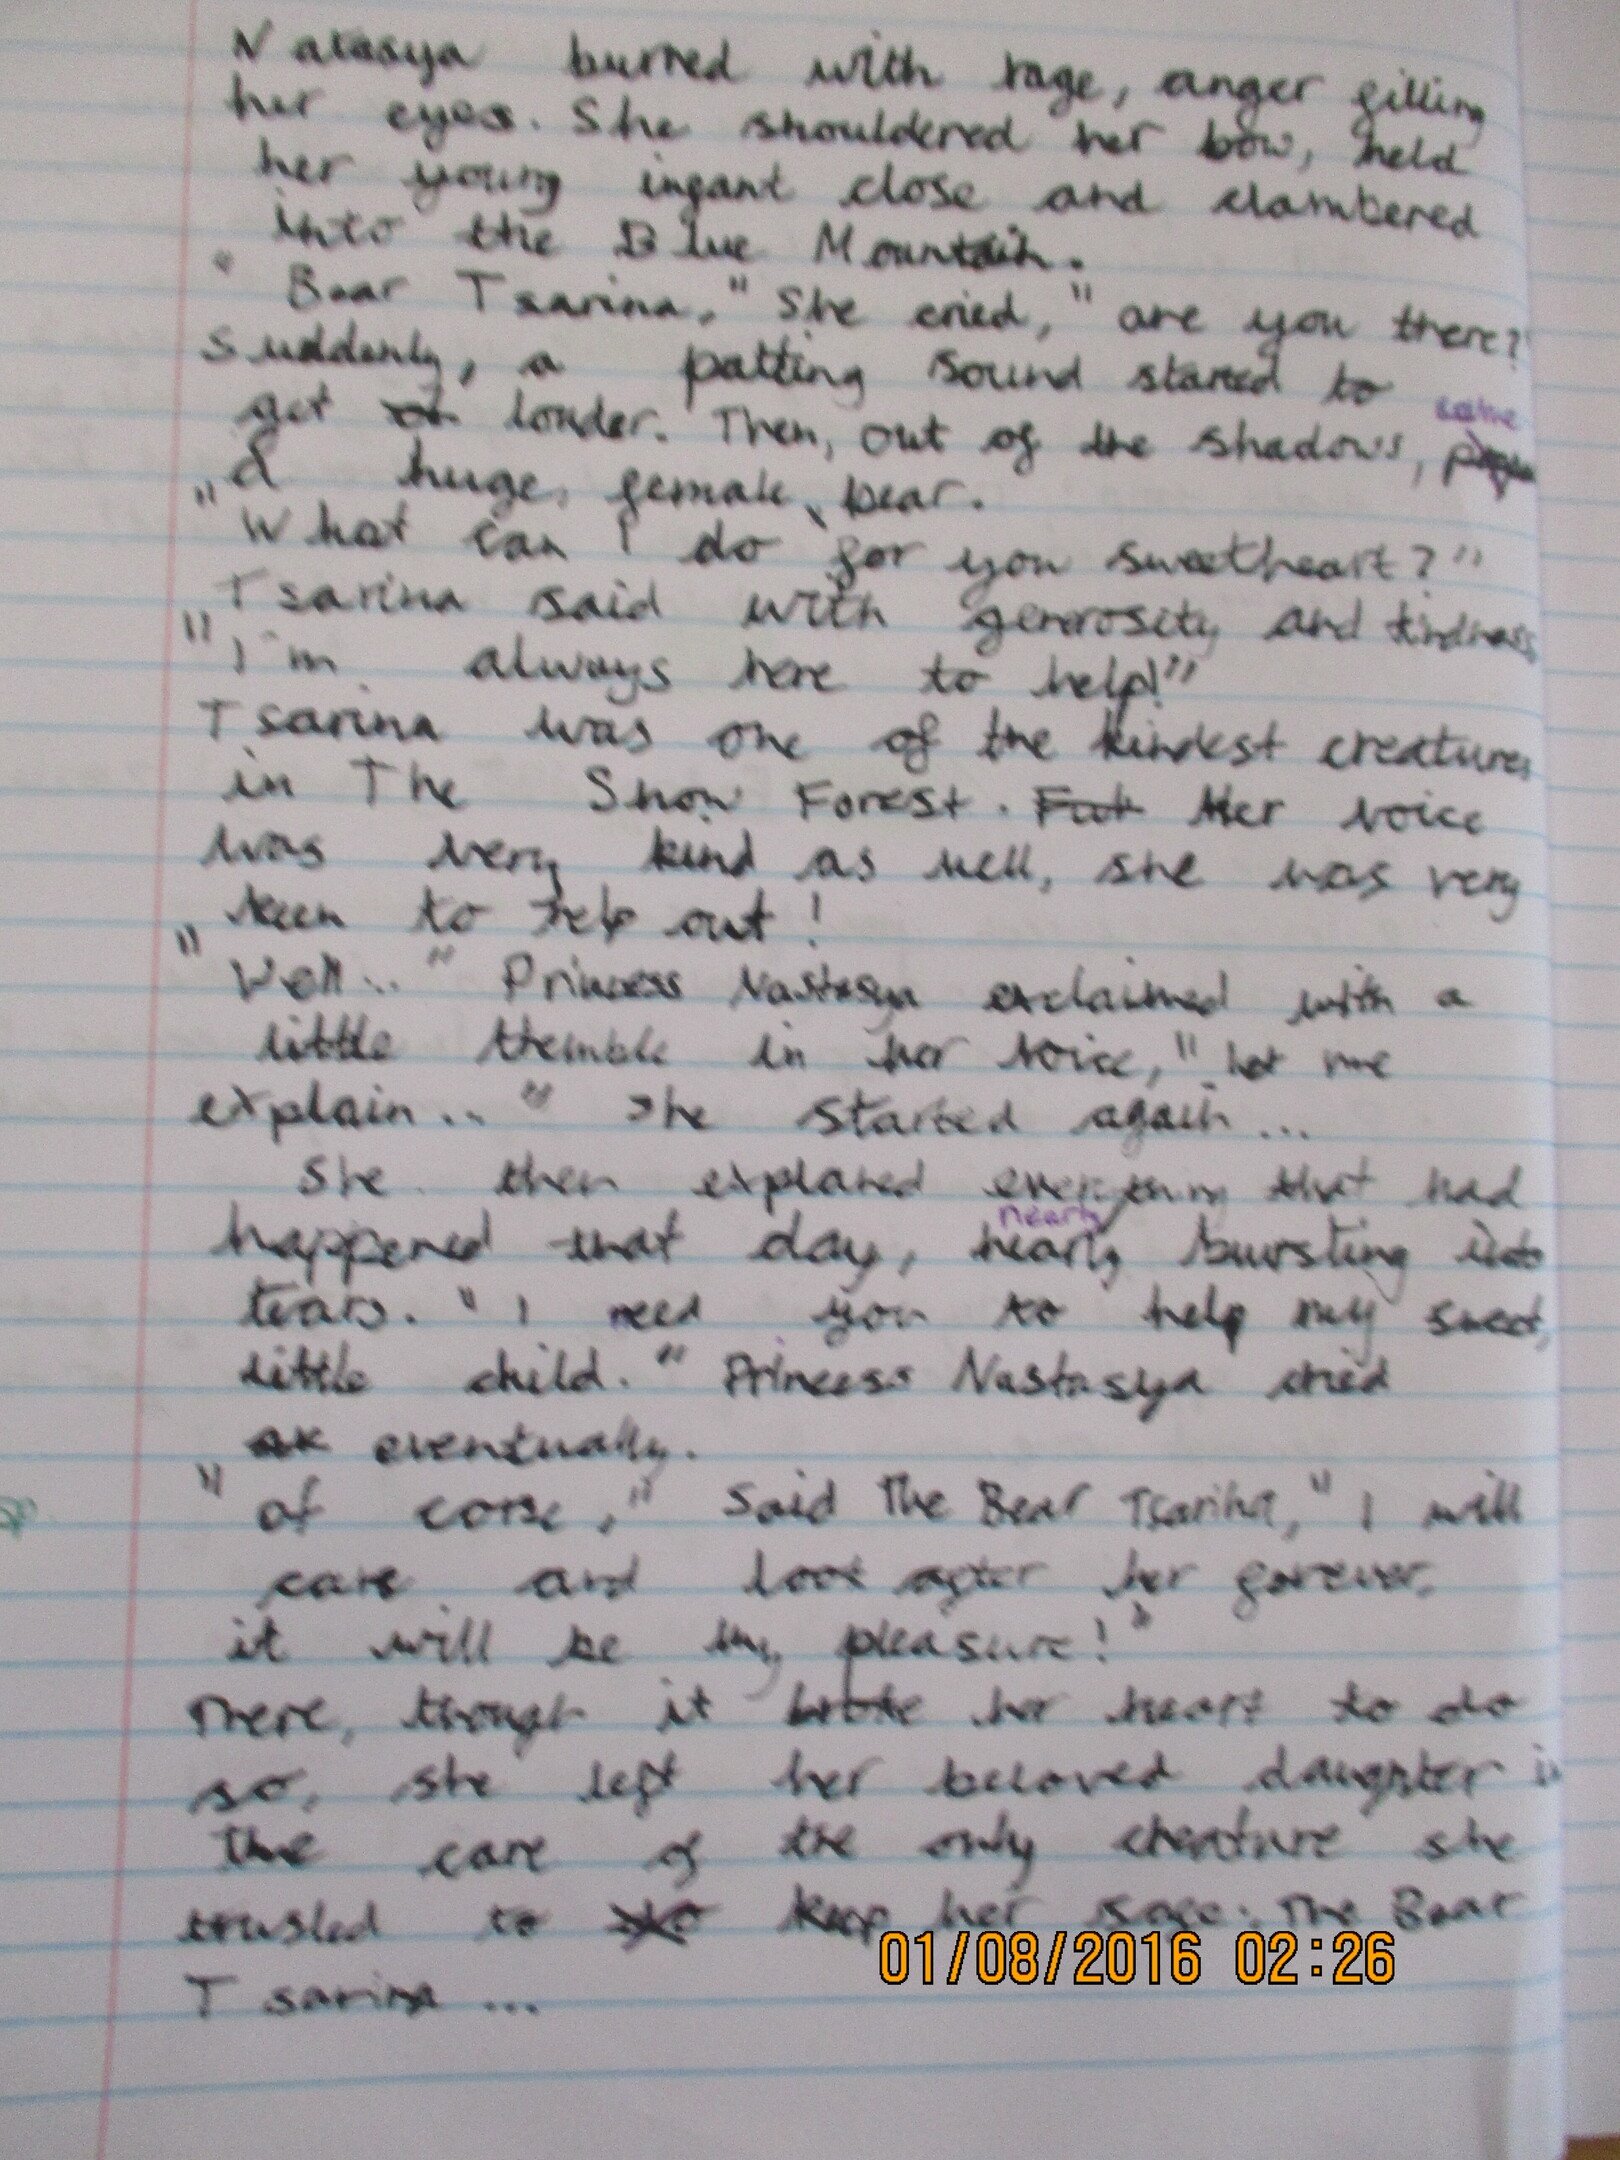 Natasya burned with rage, anger filling
her eyes. She shouldered her bow, held
her young infant close and clambered
into the Blue Mountain.
"Bear Tsarina," She cried, "are you there?"
Suddenly, a patting sound started to
get louder. Then, out of the shadows, came
a huge, female, bear.
"What can I do for you sweetheart?"
Tsarina said with generosity and kindness
"I'm always here to help!"
Tsarina was one of the kindest creatures
in The Snow Forest. Her voice
was very kind as well, she was very
keen to help out!
"Well..." Princess Nastasya exclaimed with a
little tremble in her voice, "let me
explain..." She started again...
She then explaned everything that had
happened that day, nearly bursting into
tears. "I need you to help my sweet,
little child." Princess Nastasya cried
eventually.
"of corse," Said The Bear Tsarina, "I will
care and look after her forever.
it will be my pleasure!"
There, though it broke her heart to do
so, she left her beloved daughter in
the care of the only creature she
trusted to keep her safe. The Bear
Tsarina...
01/08/2016 02:26